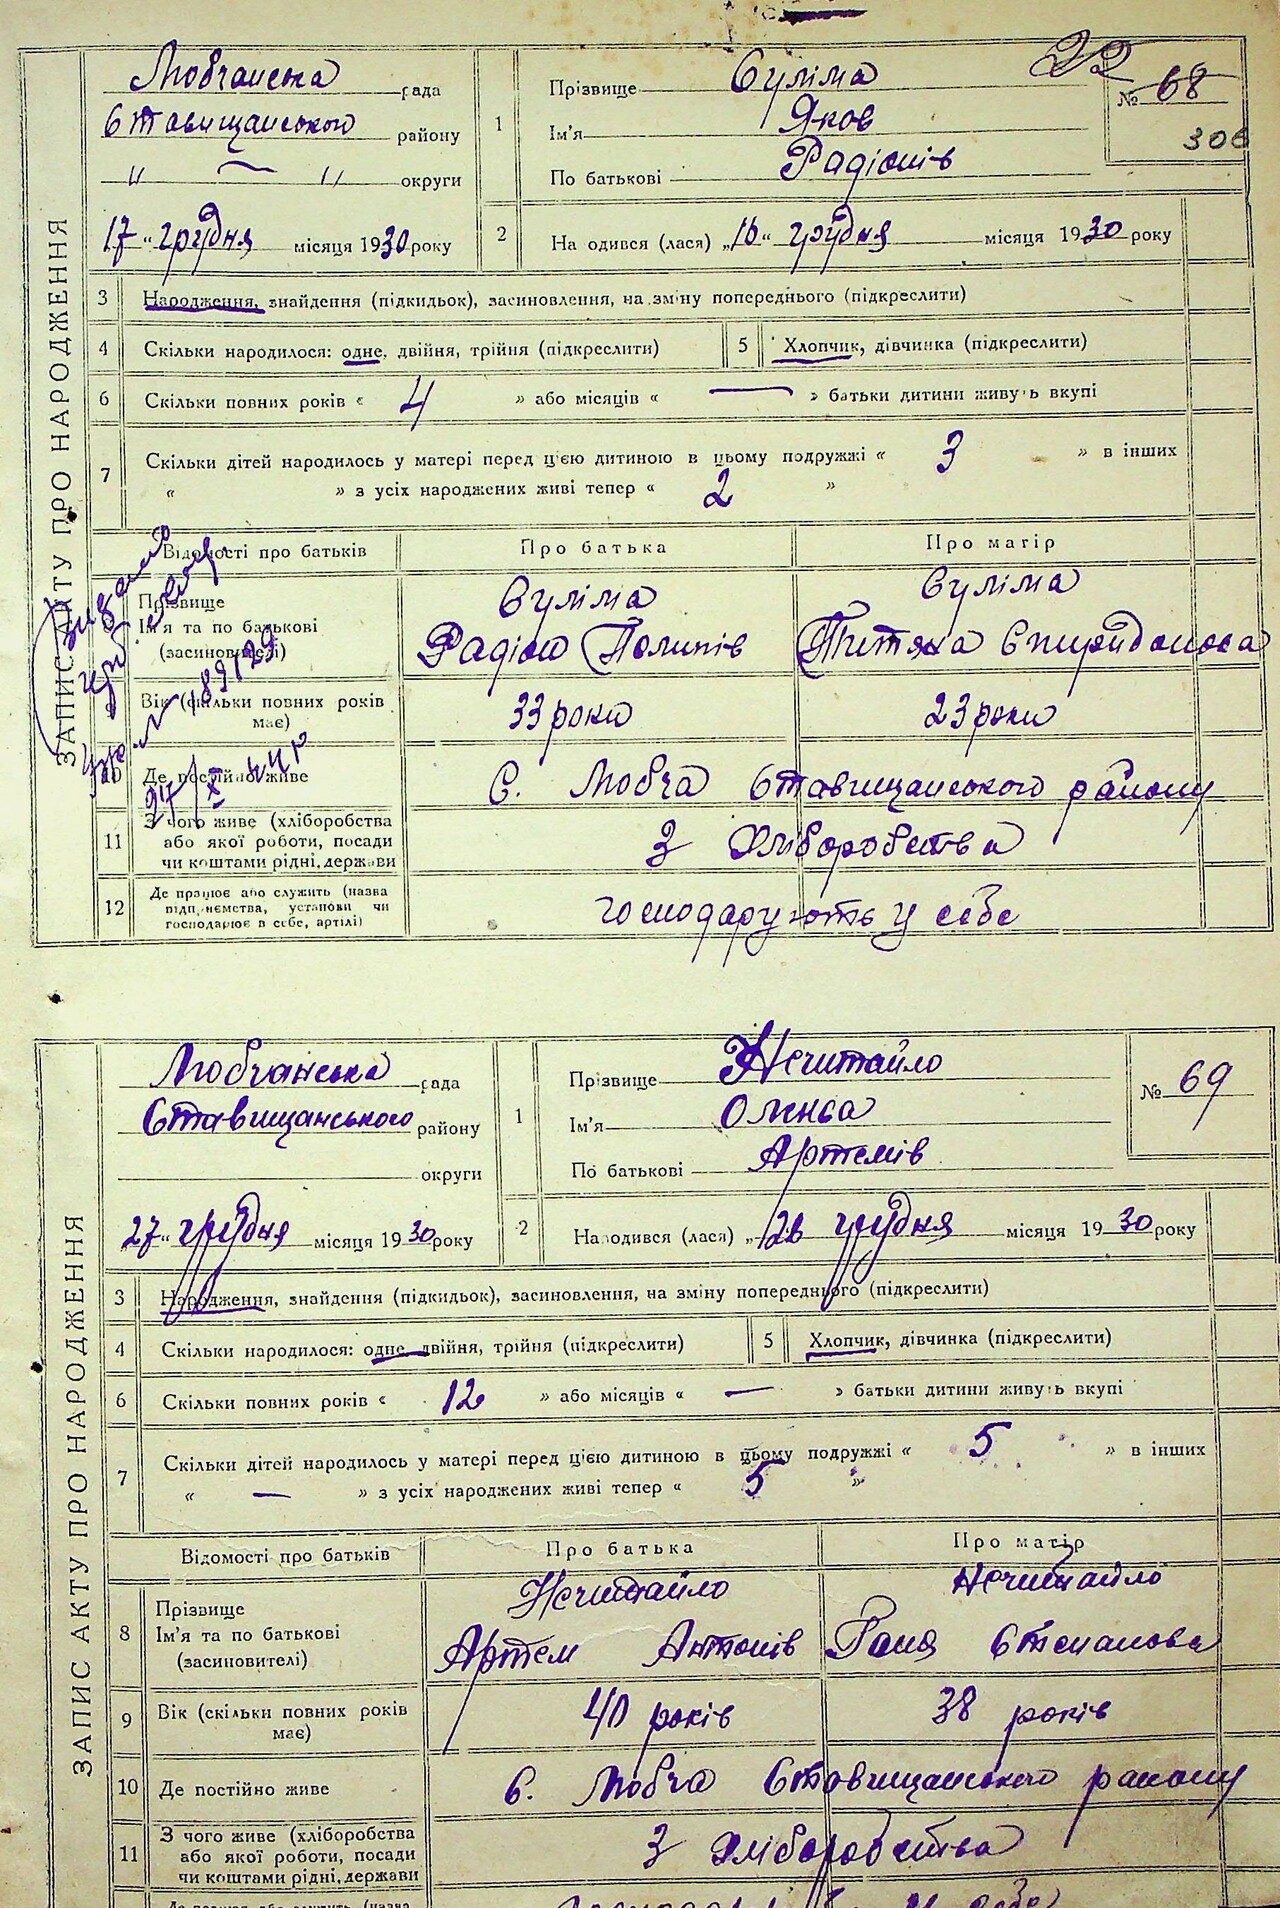 ЗАПИС АКТУ ПРО НАРОДЖЕННЯ
Любчанська рада
Ставищанського району
„ — „ округи
17 „ грудня місяця 1930 року
1 Прізвище Суліма
Ім'я Яков
По батькові Радіонів
№ 68
306
2 На одився (лася) „16“ грудня місяця 1930 року
3 Народження, знайдення (підкидьок), засиновлення, на зміну попереднього (підкреслити)
4 Скільки народилося: одне, двійня, трійня (підкреслити) 5 Хлопчик, дівчинка (підкреслити)
6 Скільки повних років « 4 » або місяців « — » батьки дитини живуть вкупі
7 Скільки дітей народилось у матері перед цією дитиною в цьому подружжі « 3 » в інших
« » з усіх народжених живі тепер « 2 »
Відомості про батьків Про батька Про матір
Прізвище
Ім'я та по батькові
(засновителі)
Суліма
Радіон
Суліма
Титяна Спирйдонова
№ 189129
27/XI
Вік (скільки повних років має) 33 роки 23 роки
10 Де постійно живе С. Любча Ставищанського району
11 З чого живе (хліборобства
або якої роботи, посади
чи коштами рідні, держави
З Хліборобства
12 Де працює або служить (назва
підприємства, установи чи
господарює в себе, артілі)
господарують у себе
ЗАПИС АКТУ ПРО НАРОДЖЕННЯ
Любчанська рада
Ставищанського району
округи
27 „ грудня місяця 1930 року
1 Прізвище Нечитайло
Ім'я
По батькові Артемів
№ 69
2 Народився (лася) „26 грудня місяця 1930 року
3 Народження, знайдення (підкидьок), засиновлення, на зміну попереднього (підкреслити)
4 Скільки народилося: одне, двійня, трійня (підкреслити) 5 Хлопчик, дівчинка (підкреслити)
6 Скільки повних років « 12 » або місяців « — » батьки дитини живуть вкупі
7 Скільки дітей народилось у матері перед цією дитиною в цьому подружжі « 5 » в інших
« — » з усіх народжених живі тепер « 5 »
Відомості про батьків Про батька Про матір
8 Прізвище
Ім'я та по батькові
(засиновителі)
Нечитайло
Артем Антонів
Нечитайло
Ганя Степанова
9 Вік (скільки повних років має) 40 років 38 років
10 Де постійно живе С. Любча Ставищанського району
11 З чого живе (хліборобства
або якої роботи, посади
чи коштами рідні, держави
З Хліборобства